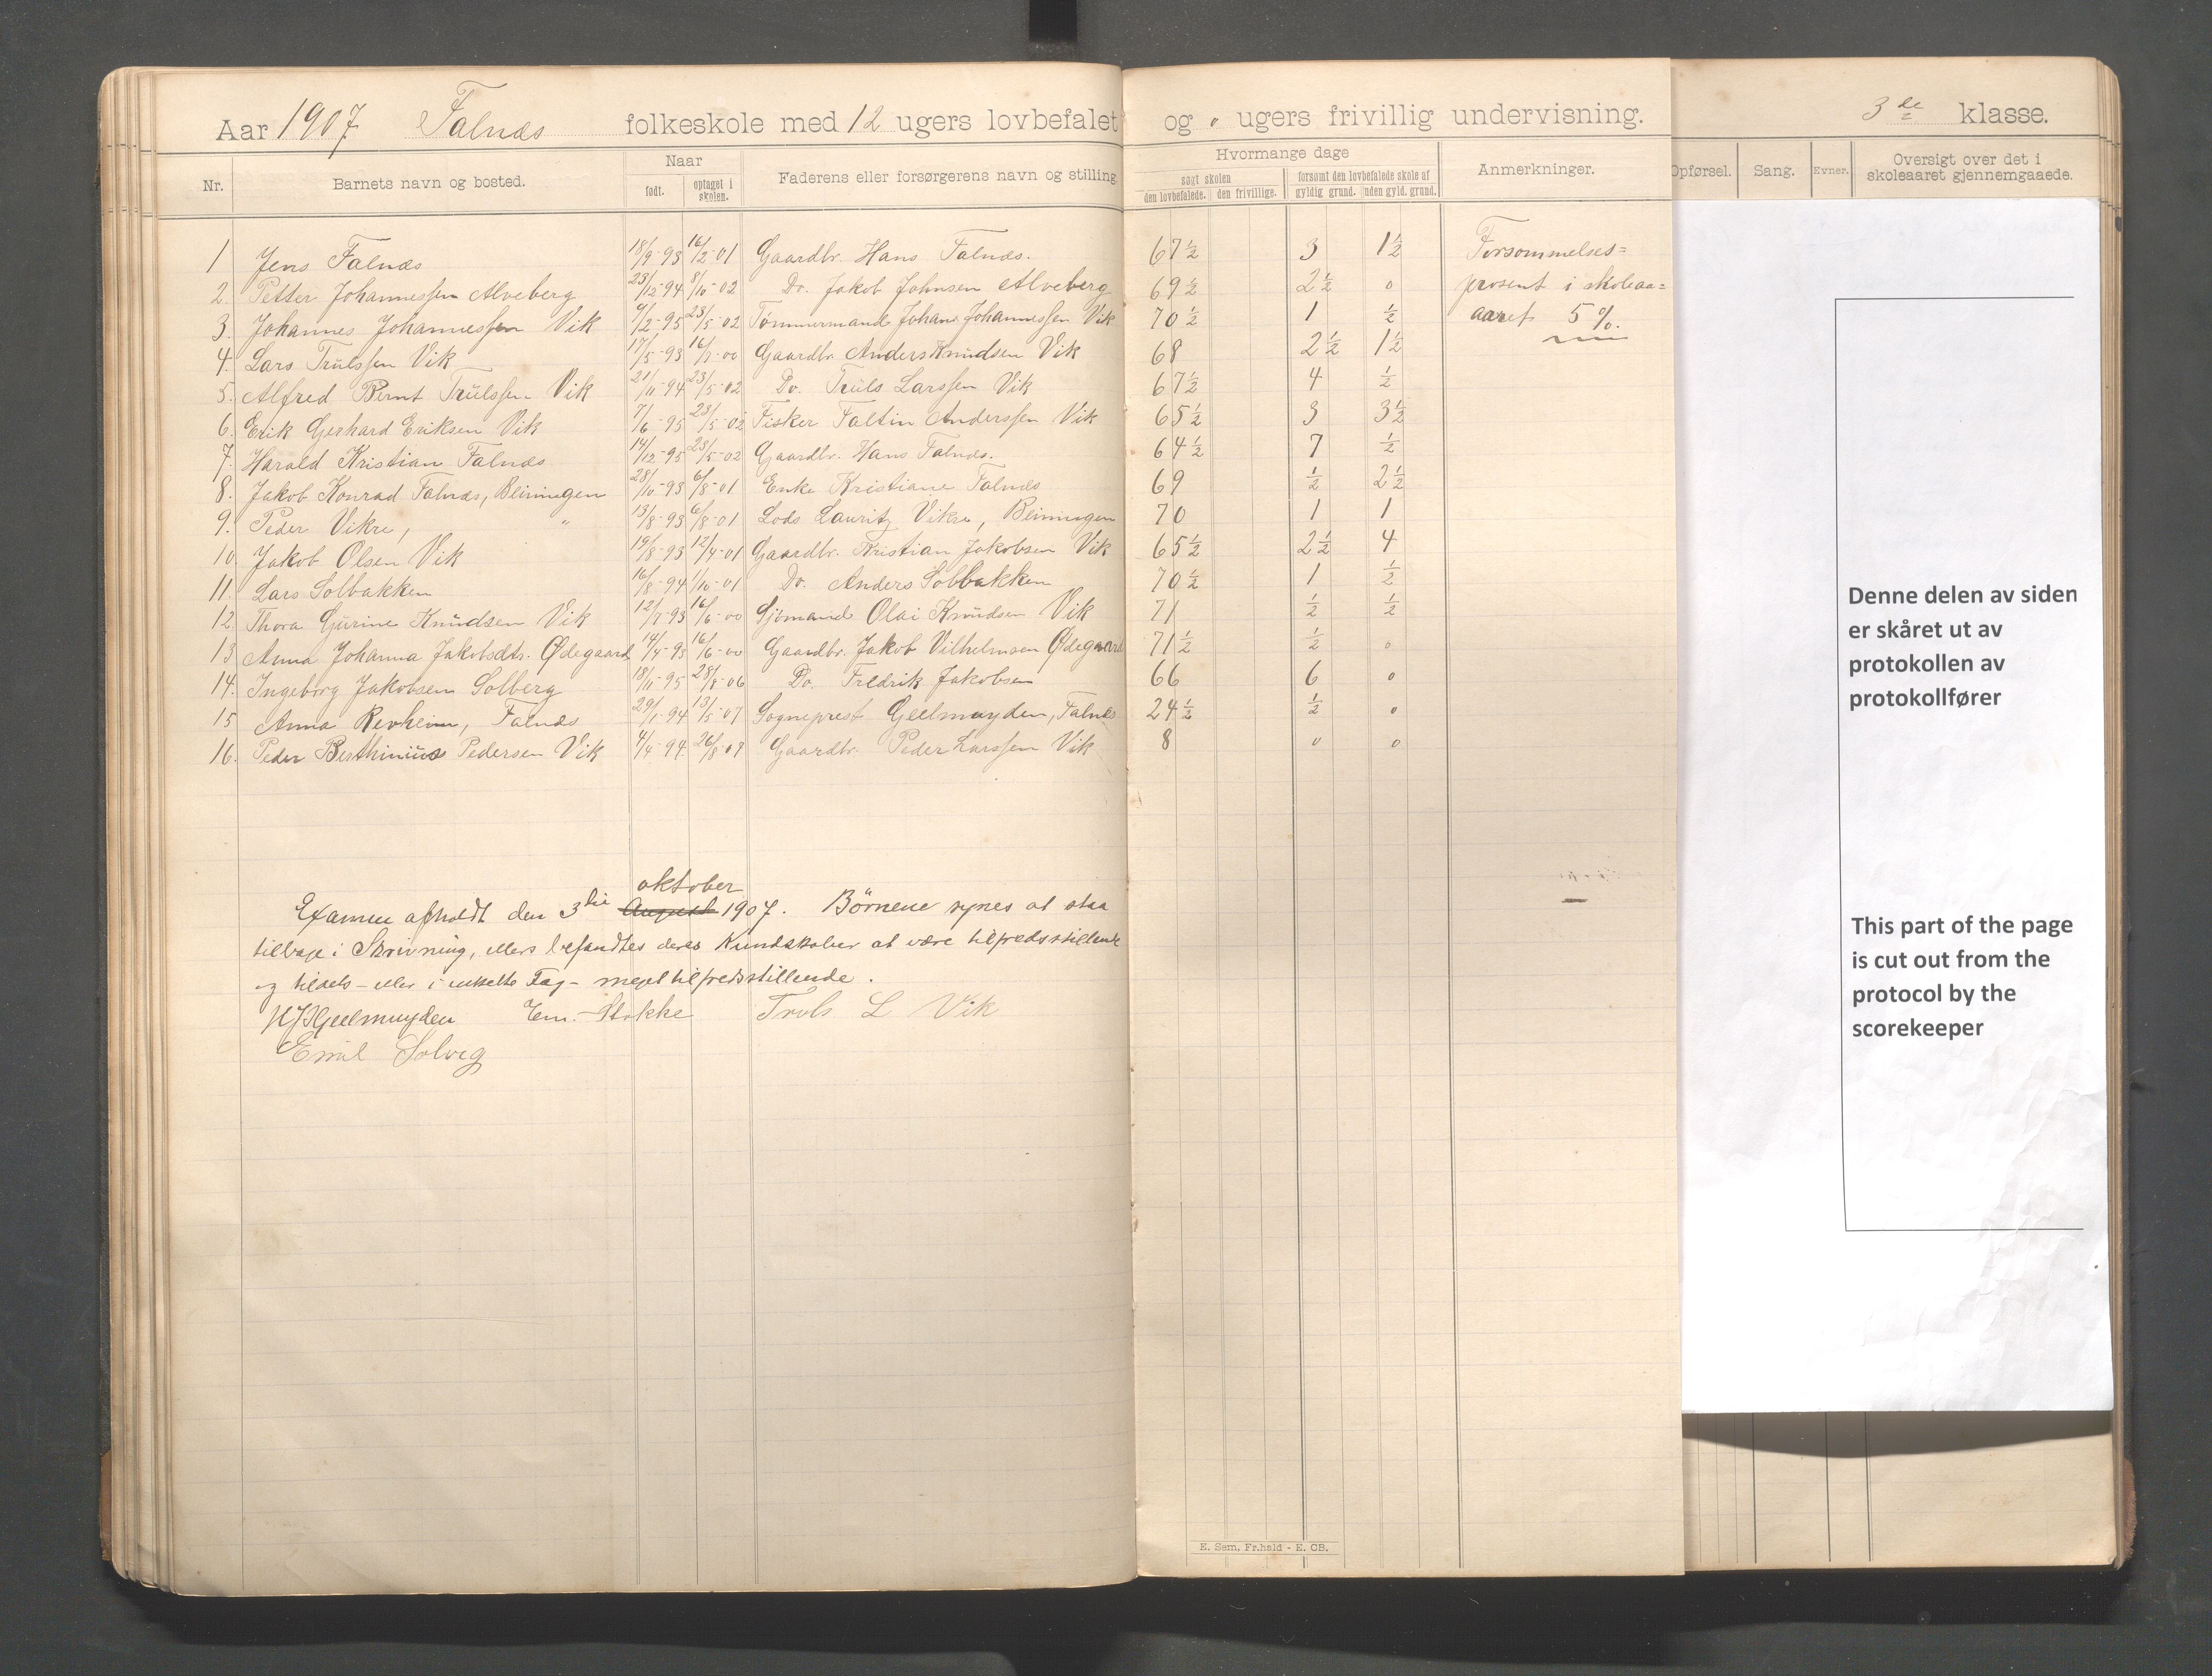 Aar 1907 Falnæs folkeskole med 12 ugers lovbefalet og 0 ugers frivillig undervisning. 3de klasse.
Nr. Barnets navn og bosted. Naar født. optaget i skolen. Faderens eller forsørgerens navn og stilling. Hvormange dage søgt skolen den lovbefalede. den frivillige. forsømt den lovbefalede skole af gyldig grund. uden gyld. grund. Anmerkninger. Opførsel. Sang. Evner. Oversigt over det i skoleaaret gjennemgaaede.
1 Jens Falnæs 18/9-93 16/2-01 Gaardbr. Hans Falnæs. 67½ 3 1½ Forsømmelses=
2. Petter Johannessen Alveberg 23/12-94 8/10-02 Do. Jakob Johnsen Alveberg 69½ 2½ 0 prosent i skoleaa=
3. Johannes Johannessen Vik 9/2-95 23/5-02 Tømmermand Johans Johannessen Vik 70½ 1 ½ aaret 5%.
4. Lars Trulssen Vik 17/5-93 16/8-00 Gaardbr. Anders Knudsen Vik 68 2½ 1½
5. Alfred Bernt Trulssen Vik 21/11-94 23/5-02 Do. Truls Larssen Vik 67½ 4 ½
6. Erik Gerhard Eriksen Vik 7/6-95 23/5-02 Fisker Faltin Anderssen Vik 65½ 3 3½
7. Harald Kristian Falnæs 14/12-95 23/5-02 Gaardbr. Hans Falnæs. 64½ 7 ½
8. Jakob Konrad Falnæs, Beiningen 28/10-93 6/8-01 Enke Kristiane Falnæs 69 ½ 2½
9. Peder Vikre, " 13/8-93 6/8-01 Lods Lauritz Vikre, Beiningen 70 1 1
10. Jakob Olsen Vik 19/8-93 12/4-01 Gaardbr. Kristian Jakobsen Vik 65½ 2½ 4
11. Lars Solbakken 16/8-94 1/10-01 Do. Anders Solbakken 70½ 1 ½
12. Thora Gurine Knudsen Vik 12/7-93 16/6-00 Sjømand Olai Knudsen Vik 71 ½ ½
13 Anna Johanna Jakobsdtr. Ødegaard 14/4-93 16/6-00 Gaardbr. Jakob Vilhelmsen Ødegaard 71½ ½ 0
14. Ingeborg Jakobsen Solberg 18/11-95 28/8-06 Do. Fredrik Jakobsen 66 6 0
15 Anna Revheim, Falnæs 29/1-94 13/5-07 Sogneprest Geelmuyden, Falnæs 24½ ½ 0
16. Peder Berthinius Pedersen Vik 4/4-94 26/8-07 Gaardbr. Peder Larssen Vik 8 0 0
oktober
Examen afholdt den 3die August 1907. Børnene synes at staa
tilbage i Skrivning, ellers befandtes deres Kundskaber at være tilfredsstillende
og tildels - eller i enkelte Fag - meget tilfredsstillende.
HJGeelmuyden Em. Stokke Truls L Vik
Emil Solveg
E. Sem, Fr.hald - E. CB.
Denne delen av siden
er skåret ut av
protokollen av
protokollfører
This part of the page
is cut out from the
protocol by the
scorekeeper